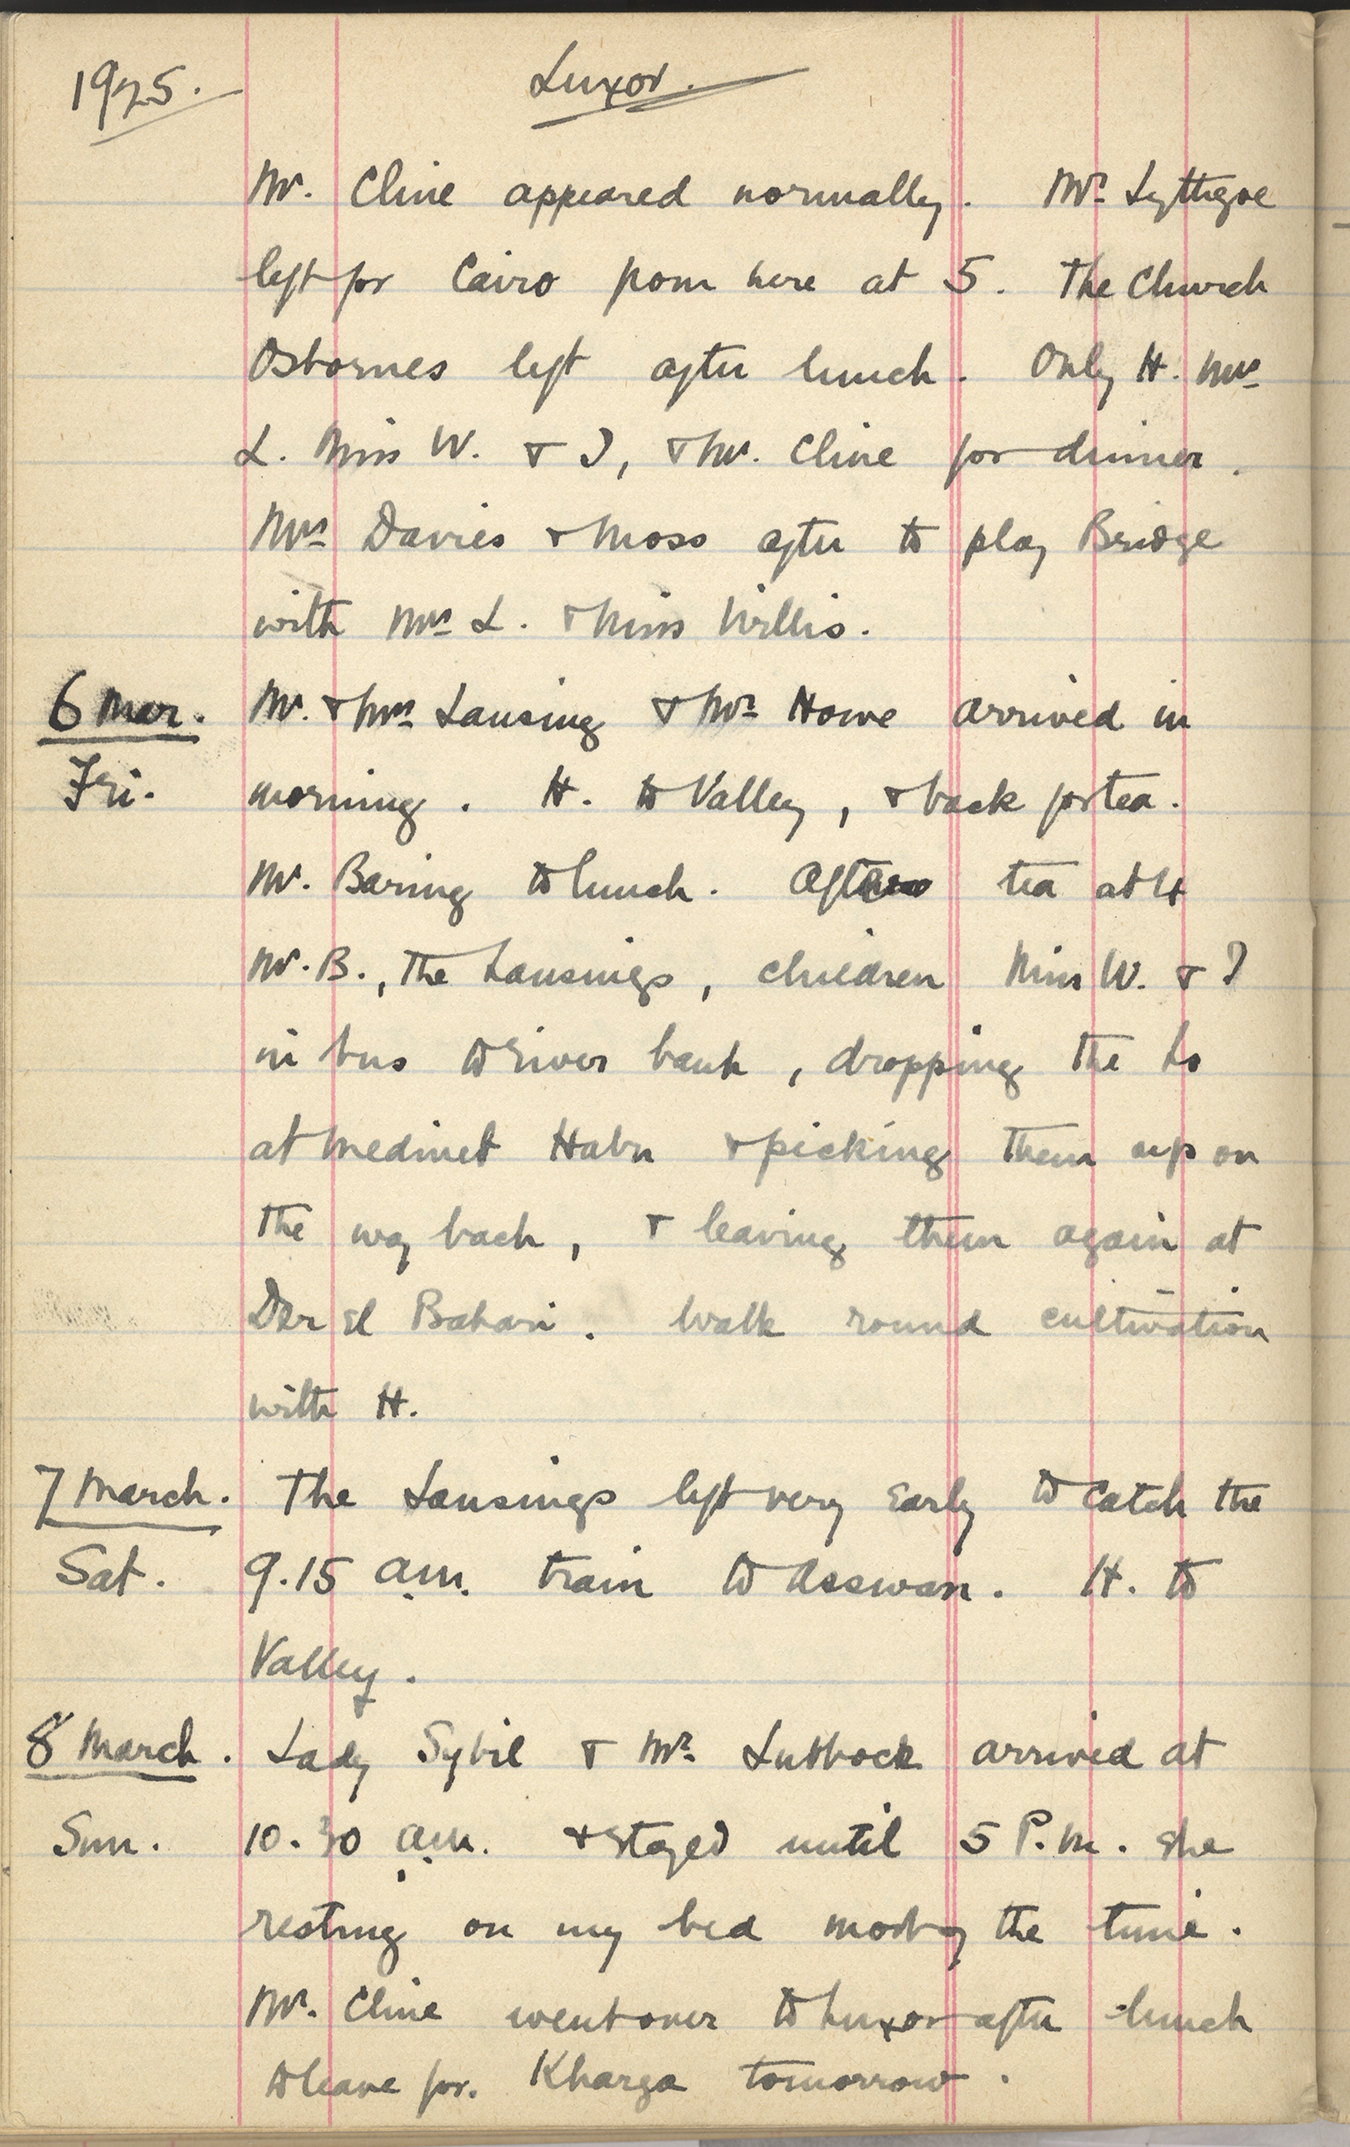 1925. Luxor.
Mr. Cline appeared normally. Mr. Lythgoe
left for Cairo from here at 5. The Church
Osbornes left after lunch. Only H. Mrs
L. Miss W. & I, & Mr. Cline for dinner.
Mrs Davies & Moss after to play Bridge
with Mrs L. & Miss Willis.
6 Mar. Mr. & Mrs Lansing & Mr. Howe arrived in
Fri. morning. H. to Valley, & back for tea.
Mr. Baring to lunch. After tea at 4
Mr. B., the Lansings, children Miss W. & I
in bus to river bank, dropping the Ls
at Medinet Habu & picking them up on
the way back, & leaving them again at
Der el Bahari. Walk round cultivation
with H.
7 March. The Lansings left very early to catch the
Sat. 9.15 a.m. train to Asswan. H. to
Valley.
8 March. Lady Sybil & Mr. Lubbock arrived at
Sun. 10.30 a.m. & stayed until 5 P.M. she
resting on my bed most of the time.
Mr. Cline went over to Luxor after lunch
to leave for Kharga tomorrow.